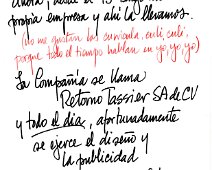 propia empresa y ahí la llevamos.
(no me gustan los curricula, culi, culi,
porque todo el tiempo hablan en yo, yo, yo)
La Compañía se llama
Retorno Tassier SA de CV
y todo el día, afortunadamente
se ejerce el diseño y
la publicidad